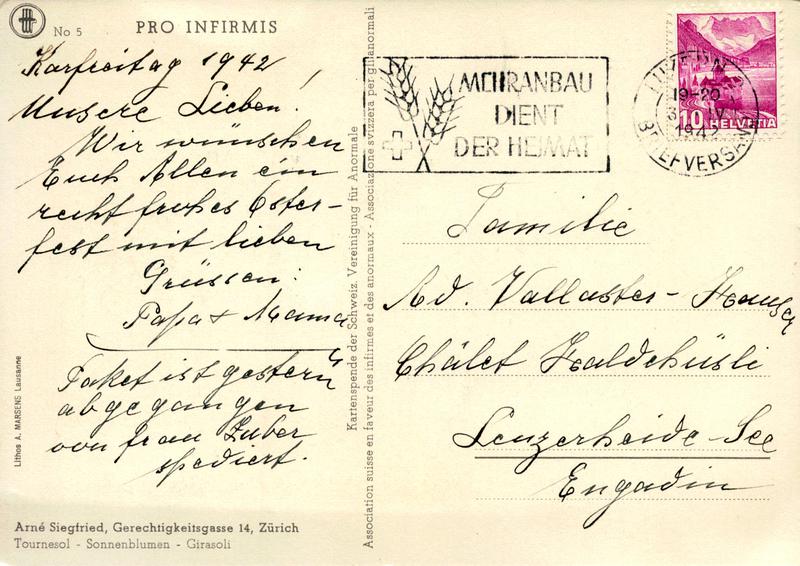 No 5
PRO INFIRMIS
Karfreitag 1942
Unsere Lieben!
Wir wünschen
Euch Allen ein
recht frohes Oster-
fest mit lieben
Grüssen:
Papa & Mama
Paket ist gestern
abgegangen
von frau Zuber
spediert.
Lithos A. MARSENS Lausanne
Arné Siegfried, Gerechtigkeitsgasse 14, Zürich
Tournesol - Sonnenblumen - Girasoli
Kartenspende der Schweiz. Vereinigung für Anormale
Association suisse en faveur des infirmes et des anormaux - Associazione svizzera per gli anormali
MEHRANBAU
DIENT
DER HEIMAT
LUZERN
19-20
IV
1942
BRIEFVERSAND
10 HELVETIA
Familie
Ad. Vallaster-Hauser
Châlet Haldehüsli
Lenzerheide-See
Engadin